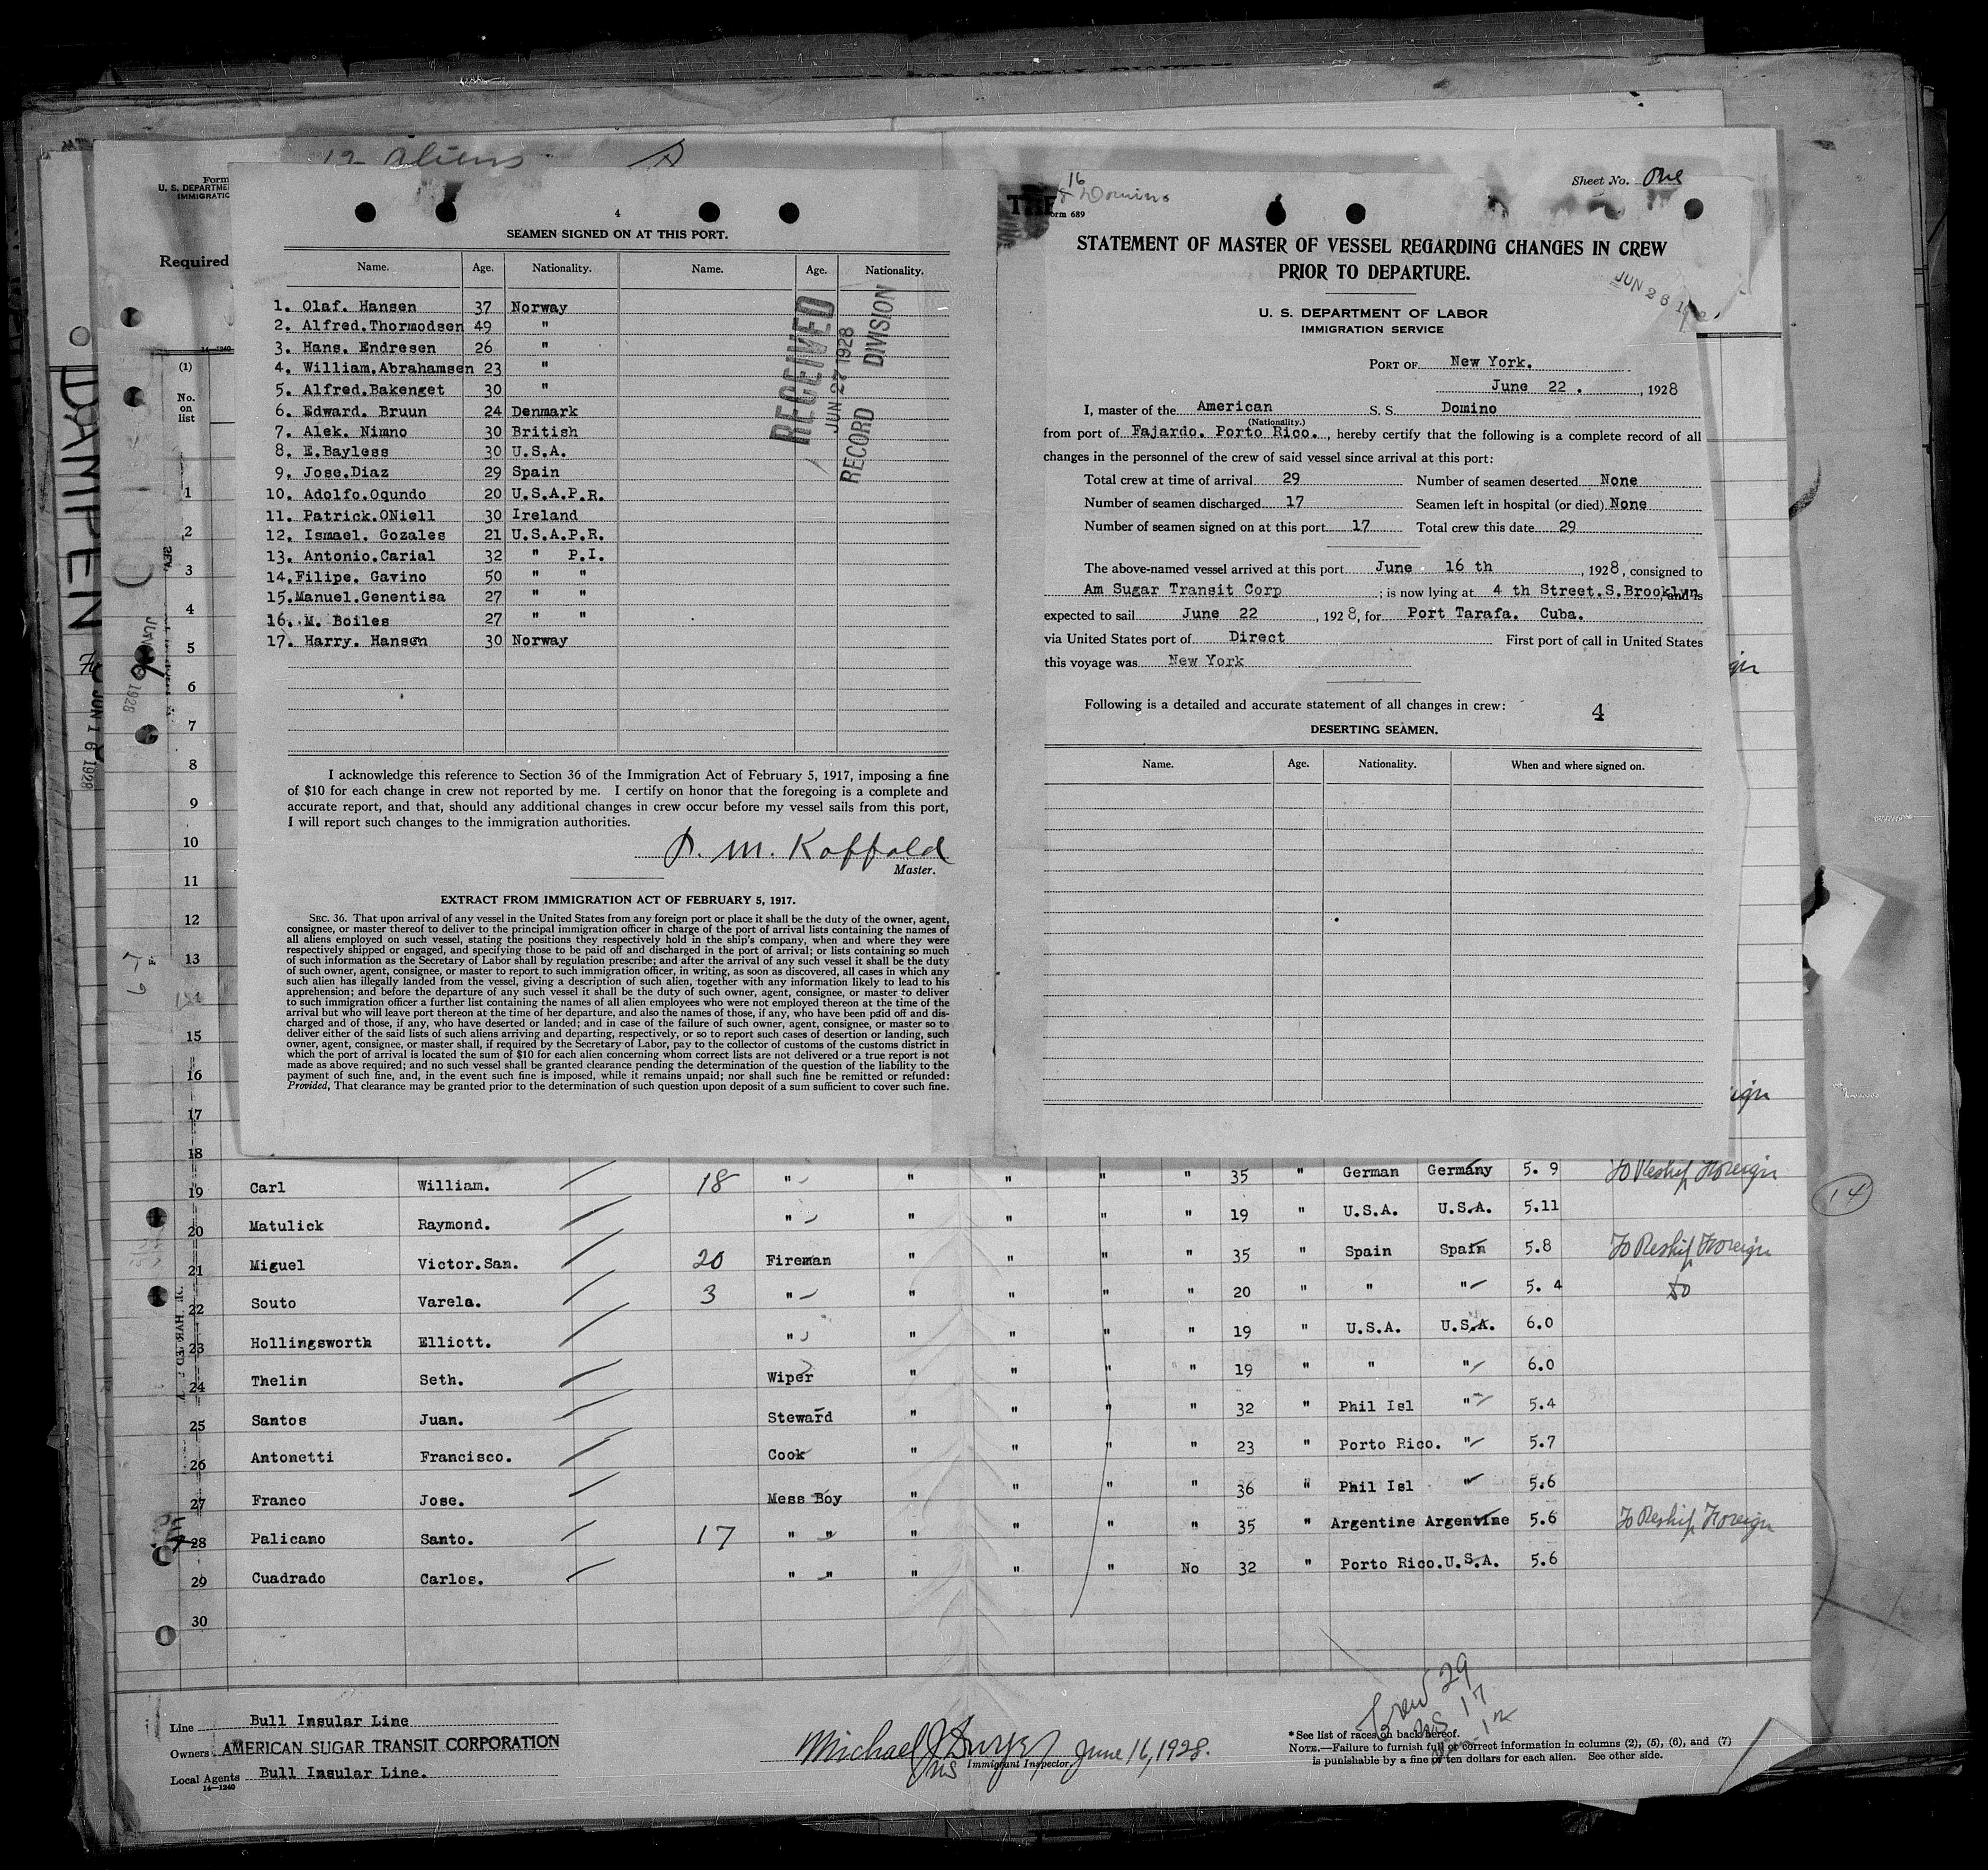 12 aliens
Form
U. S. DEPARTME
IMMIGRATIC
Required
14—1240
(1)
No.
on
list
DAMPEN
JUN 16 1928
4
SEAMEN SIGNED ON AT THIS PORT.
Name. Age. Nationality. Name. Age. Nationality.
1. Olaf. Hansen 37 Norway
2. Alfred.Thormodsen 49 "
3. Hans. Endresen 26 "
4. William.Abrahamsen 23 "
5. Alfred.Bakenget 30 "
6. Edward. Bruun 24 Denmark
7. Alek. Nimno 30 British
8. E.Bayless 30 U.S.A.
9. Jose.Diaz 29 Spain
10. Adolfo.Oqundo 20 U.S.A.P.R.
11. Patrick.ONiell 30 Ireland
12. Ismael. Gozales 21 U.S.A.P.R.
13. Antonio.Carial 32 " P.I.
14.Filipe. Gavino 50 " "
15.Manuel.Genentisa 27 " "
16. M. Boiles 27 " "
17. Harry. Hansen 30 Norway
RECEIVED
JUN 27 1928
RECORD DIVISION
I acknowledge this reference to Section 36 of the Immigration Act of February 5, 1917, imposing a fine
of $10 for each change in crew not reported by me. I certify on honor that the foregoing is a complete and
accurate report, and that, should any additional changes in crew occur before my vessel sails from this port,
I will report such changes to the immigration authorities.
P. M. Koffold
Master.
EXTRACT FROM IMMIGRATION ACT OF FEBRUARY 5, 1917.
SEC. 36. That upon arrival of any vessel in the United States from any foreign port or place it shall be the duty of the owner, agent,
consignee, or master thereof to deliver to the principal immigration officer in charge of the port of arrival lists containing the names of
all aliens employed on such vessel, stating the positions they respectively hold in the ship's company, when and where they were
respectively shipped or engaged, and specifying those to be paid off and discharged in the port of arrival; or lists containing so much
of such information as the Secretary of Labor shall by regulation prescribe; and after the arrival of any such vessel it shall be the duty
of such owner, agent, consignee, or master to report to such immigration officer, in writing, as soon as discovered, all cases in which any
such alien has illegally landed from the vessel, giving a description of such alien, together with any information likely to lead to his
apprehension; and before the departure of any such vessel it shall be the duty of such owner, agent, consignee, or master to deliver
to such immigration officer a further list containing the names of all alien employees who were not employed thereon at the time of the
arrival but who will leave port thereon at the time of her departure, and also the names of those, if any, who have been paid off and dis-
charged and of those, if any, who have deserted or landed; and in case of the failure of such owner, agent, consignee, or master so to
deliver either of the said lists of such aliens arriving and departing, respectively, or so to report such cases of desertion or landing, such
owner, agent, consignee, or master shall, if required by the Secretary of Labor, pay to the collector of customs of the customs district in
which the port of arrival is located the sum of $10 for each alien concerning whom correct lists are not delivered or a true report is not
made as above required; and no such vessel shall be granted clearance pending the determination of the question of the liability to the
payment of such fine, and, in the event such fine is imposed, while it remains unpaid; nor shall such fine be remitted or refunded:
Provided, That clearance may be granted prior to the determination of such question upon deposit of a sum sufficient to cover such fine.
16
Domino
orm 689
Sheet No. One
STATEMENT OF MASTER OF VESSEL REGARDING CHANGES IN CREW
PRIOR TO DEPARTURE.
JUN 26
U. S. DEPARTMENT OF LABOR
IMMIGRATION SERVICE
PORT OF New York.
June 22 . , 1928
I, master of the American S. S. Domino
(Nationality.)
from port of Fajardo. Porto Rico. , hereby certify that the following is a complete record of all
changes in the personnel of the crew of said vessel since arrival at this port:
Total crew at time of arrival 29 Number of seamen deserted None
Number of seamen discharged 17 Seamen left in hospital (or died) None
Number of seamen signed on at this port 17 Total crew this date 29
The above-named vessel arrived at this port June 16 th , 1928, consigned to
Am Sugar Transit Corp ; is now lying at 4 th Street.S.Brooklyn, and is
expected to sail June 22 , 1928, for Port Tarafa. Cuba.
via United States port of Direct First port of call in United States
this voyage was New York
Following is a detailed and accurate statement of all changes in crew: 4
DESERTING SEAMEN.
Name. Age. Nationality. When and where signed on.
1
2
3
4
5
6
7
8
9
10
11
12
13
14
15
16
17
18
19 Carl William. 18 " " " " " 35 " German Germany 5. 9 To Reship Foreign
20 Matulick Raymond. " " " " " 19 " U.S.A. U.S.A. 5.11
21 Miguel Victor.San. 20 Fireman " " " " 35 " Spain Spain 5.8 To Reship Foreign
22 Souto Varela. 3 " " " " " 20 " " " 5. 4 do
23 Hollingsworth Elliott. " " " " " 19 " U.S.A. U.S.A. 6.0
24 Thelin Seth. Wiper " " " " 19 " " " 6.0
25 Santos Juan. Steward " " " " 32 " Phil Isl " 5.4
26 Antonetti Francisco. Cook " " " " 23 " Porto Rico. " 5.7
27 Franco Jose. Mess Boy " " " " 36 " Phil Isl " 5.6
28 Palicano Santo. 17 " " " " " " 35 " Argentine Argentine 5.6 To Reship Foreign
29 Cuadrado Carlos. " " " " " No 32 " Porto Rico. U.S.A. 5.6
30
14
Crew 29
US 17
12
Line Bull Insular Line
Owners AMERICAN SUGAR TRANSIT CORPORATION
Local Agents Bull Insular Line.
14—1240
Michael J Duryea June 16, 1928.
Ins Immigrant Inspector.
* See list of races on back hereof.
NOTE.—Failure to furnish full or correct information in columns (2), (5), (6), and (7)
is punishable by a fine of ten dollars for each alien. See other side.